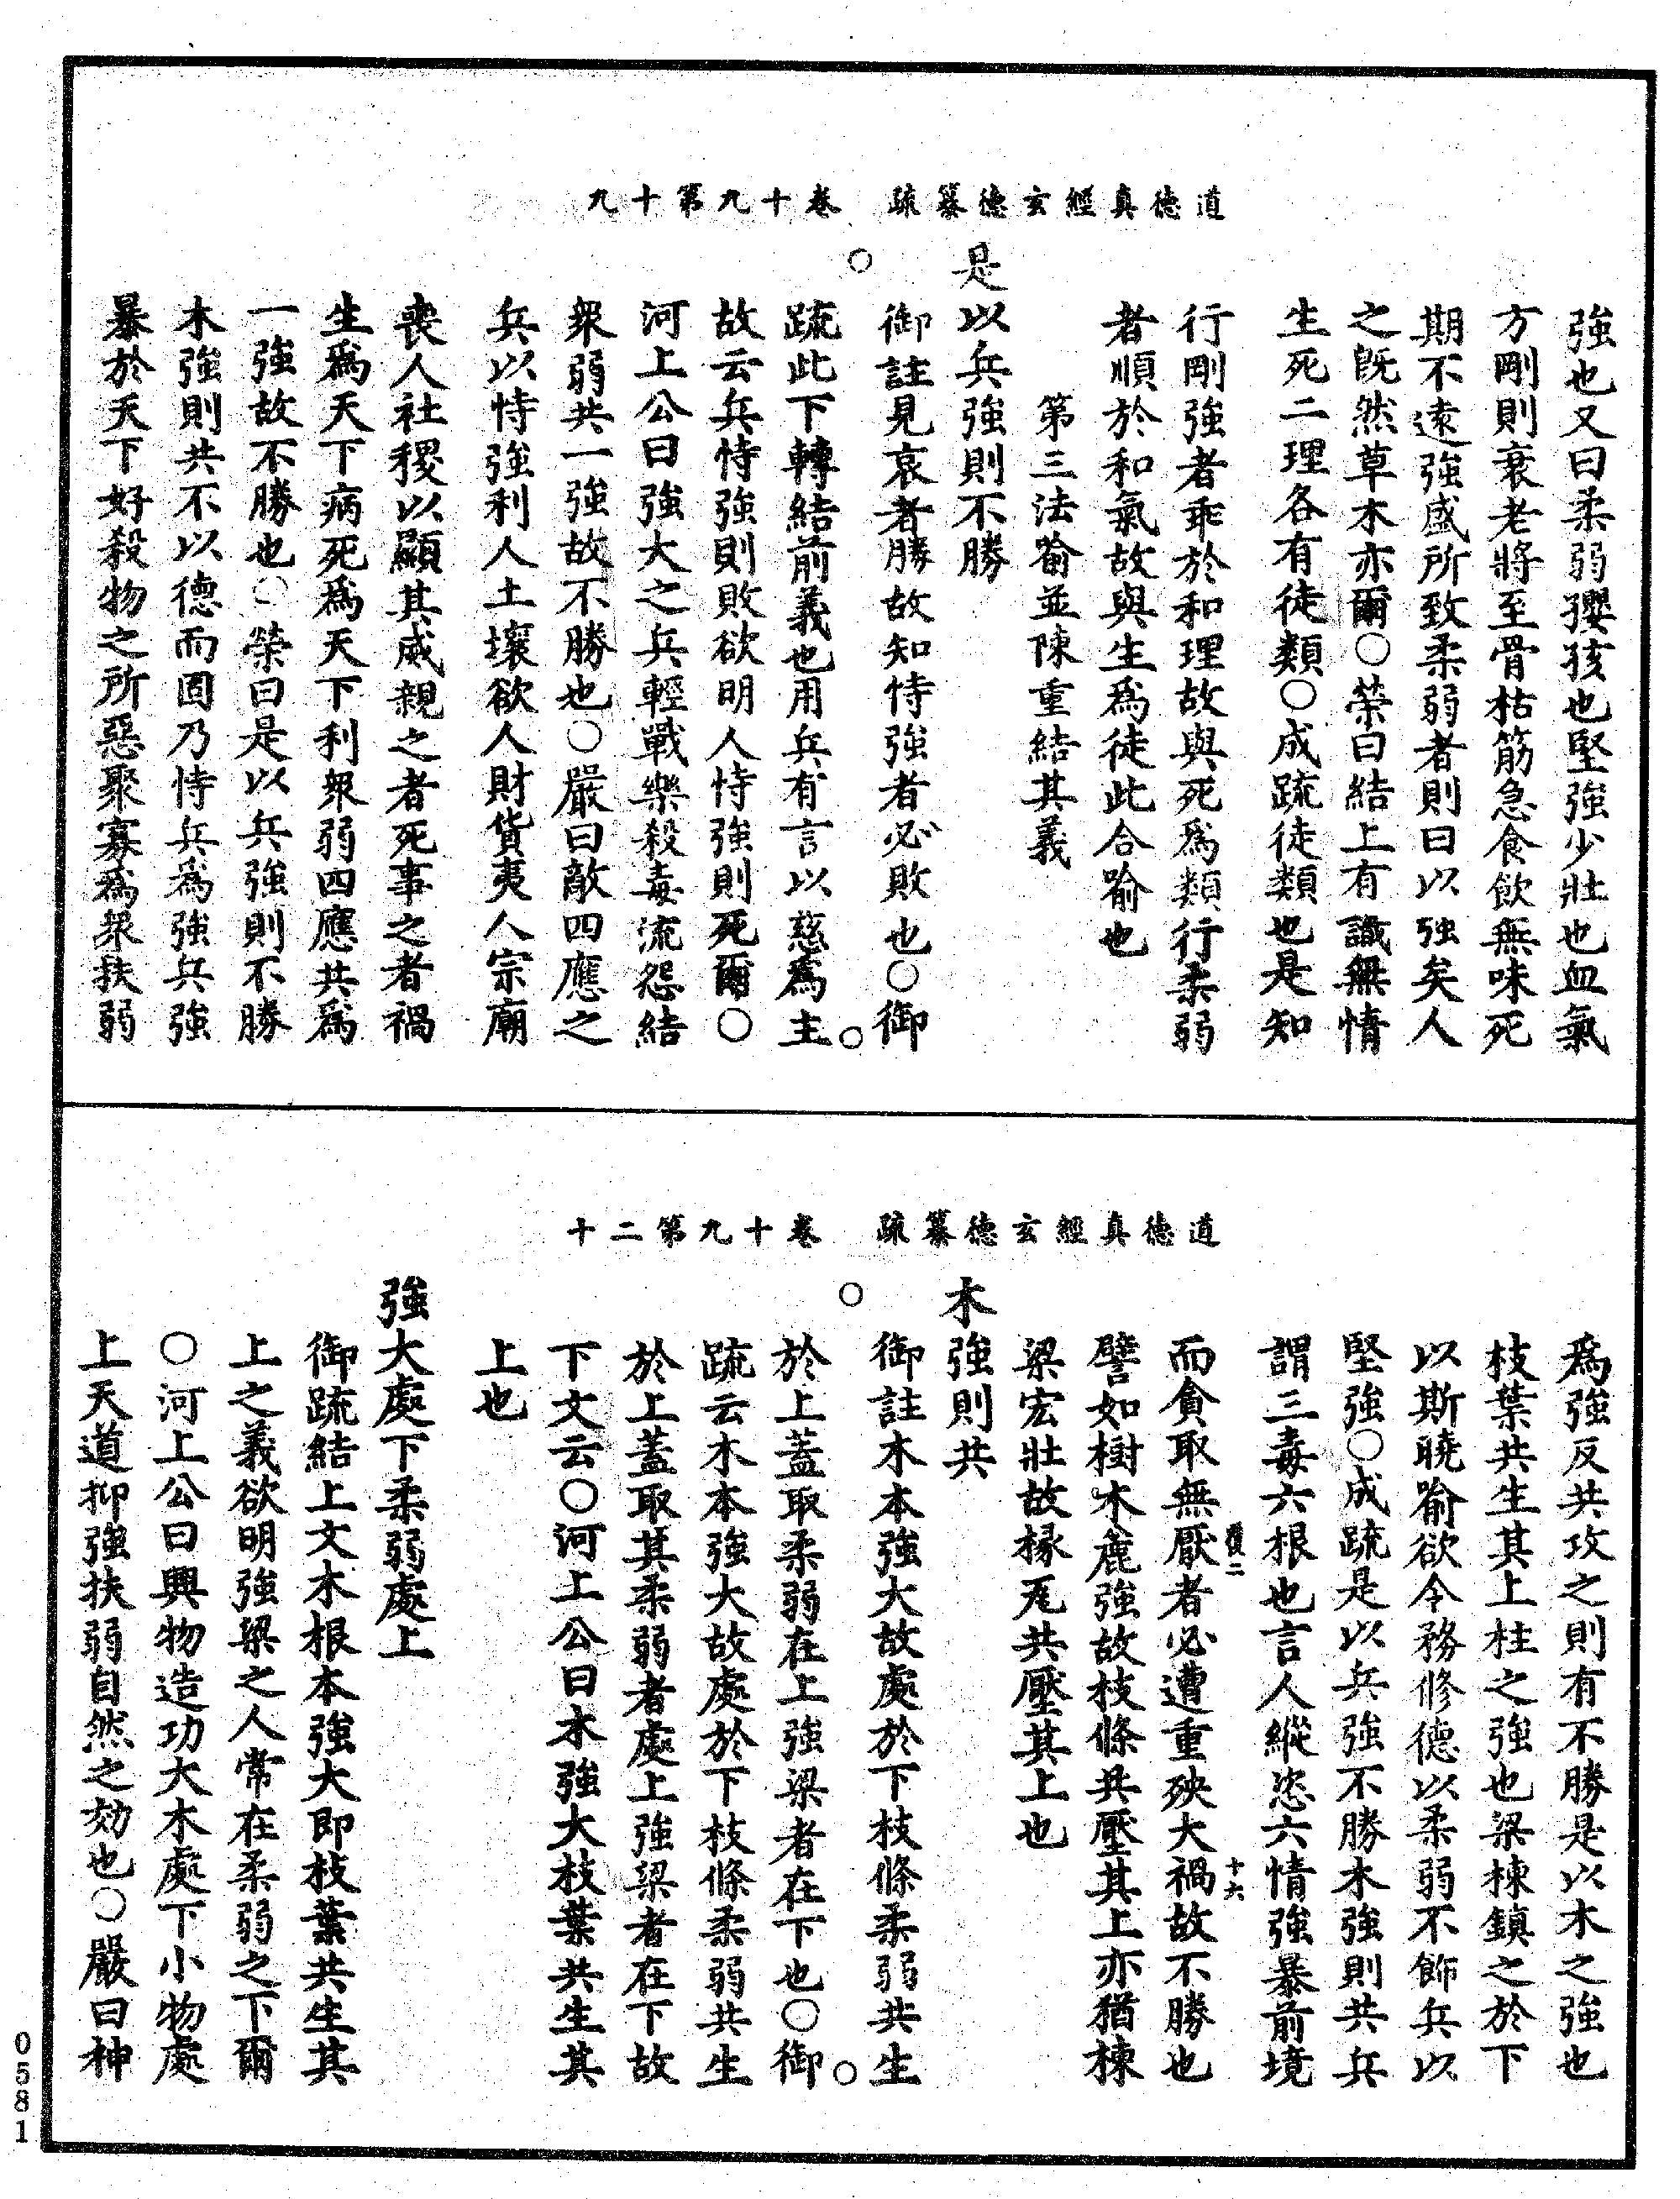 道德真經玄德纂疏　卷十九第十九
強也又曰柔弱孾孩也堅強少壯也血氣
方剛則衰老將至骨枯筋急食飲無味死
期不遠強盛所致柔弱者則曰以強矣人
之旣然草木亦爾○榮曰結上有識無情
生死二理各有徒類○成疏徒類也是知
行剛強者乖於和理故與死爲類行柔弱
者順於和氣故與生爲徒此合喻也
第三法喻並陳重結其義
是以兵強則不勝
御註見哀者勝故知恃強者必敗也○御
疏此下轉結前義也用兵有言以慈爲主
故云兵恃強則敗欲明人恃強則死爾○
河上公曰強大之兵輕戰樂殺毒流怨結
衆弱共一強故不勝也○嚴曰敵四應之
兵以恃強利人土壤欲人財貨夷人宗廟
喪人社稷以顯其威親之者死事之者禍
生爲天下病死爲天下利衆弱四應共爲
一強故不勝也○榮曰是以兵強則不勝
木強則共不以德而固乃恃兵爲強兵強
暴於天下好殺物之所惡聚寡爲衆扶弱
道德真經玄德纂疏　卷十九第二十
爲強反共攻之則有不勝是以木之強也
枝葉共生其上柱之強也梁棟鎮之於下
以斯曉喻欲令務修德以柔弱不飾兵以
堅強○成疏是以兵強不勝木強則共兵
謂三毒六根也言人縱恣六情強暴前境
復二　十六
而貪取無厭者必遭重殃大禍故不勝也
譬如樹木麁強故枝條共壓其上亦猶棟
梁宏壯故椽瓦共壓其上也
木強則共
御註木本強大故處於下枝條柔弱共生
於上蓋取柔弱在上強梁者在下也○御
疏云木本強大故處於下枝條柔弱共生
於上蓋取其柔弱者處上強梁者在下故
下文云○河上公曰木強大枝葉共生其
上也
強大處下柔弱處上
御疏結上文木根本強大即枝葉共生其
上之義欲明強梁之人常在柔弱之下爾
○河上公曰興物造功大木處下小物處
上天道抑強扶弱自然之効也○嚴曰神
0581